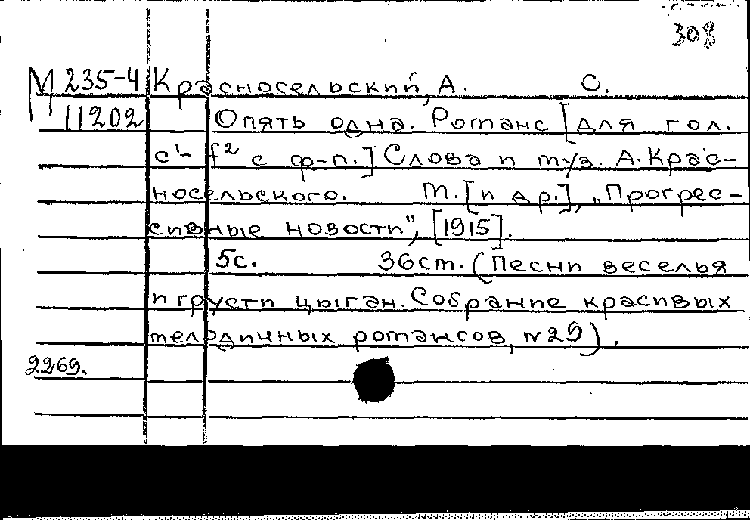 308
М 235-4 Красносельский, А. С.
11202 Опять одна. Романс [для гол.
c¹- f² с ф-п.] Слова и муз. А. Крас-
носельского. М. [и др.], „Прогрес-
сивные новости", [1915].
5с. 36см. (Песни веселья
и грусти цыган. Собрание красивых
мелодичных романсов, №29).
2269.